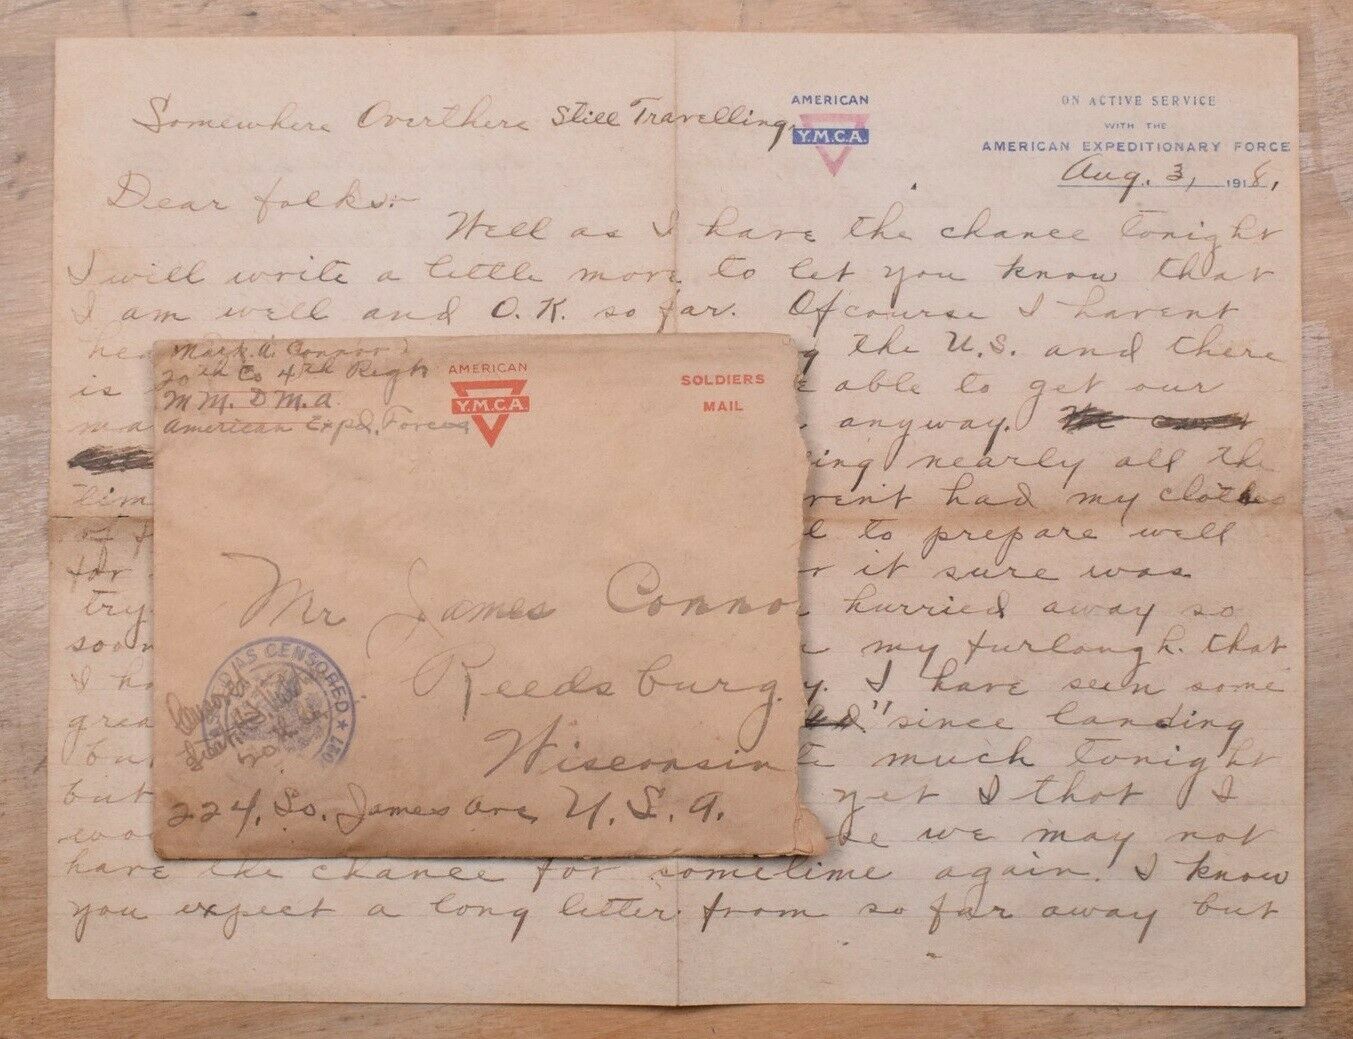 Somewhere Overthere Still Travelling.
AMERICAN
Y.M.C.A.
ON ACTIVE SERVICE
WITH THE
AMERICAN EXPEDITIONARY FORCE
Aug. 3, 1918,
Dear folks:-
Well as I have the chance tonight
I will write a little more to let you know that
I am well and O.K. so far. Ofcourse I havent
hea the U.S. and there
is able to get our
ma anyway.
ing nearly all the
tim rent had my clothes
of to prepare well
for it sure was
try hurried away so
soon my furlough. that
I ha I have seen some
grea " since landing
but much tonight
but yet I that I
we may not
have the chance for sometime again. I know
you expect a long letter from so far away but
Mark A. Connor
20th Co 4th Regt
M M. D M. A
American Expd. Forces
AMERICAN
Y.M.C.A.
SOLDIERS
MAIL
Mr James Conno
Reedsburg.
Wisconsin
224. So. James Ave U. S. A.
AS CENSORED